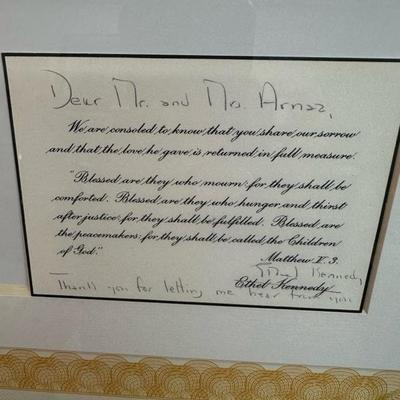 Dear Mr. and Mrs. Arnaz,
We are consoled to know that you share our sorrow
and that the love he gave is returned in full measure.
"Blessed are they who mourn for they shall be
comforted. Blessed are they who hunger and thirst
after justice for they shall be fulfilled. Blessed are
the peacemakers for they shall be called the Children
of God."
Matthew V. 3.
Ethel Kennedy
Ethel Kennedy
Thank you for letting me hear from you